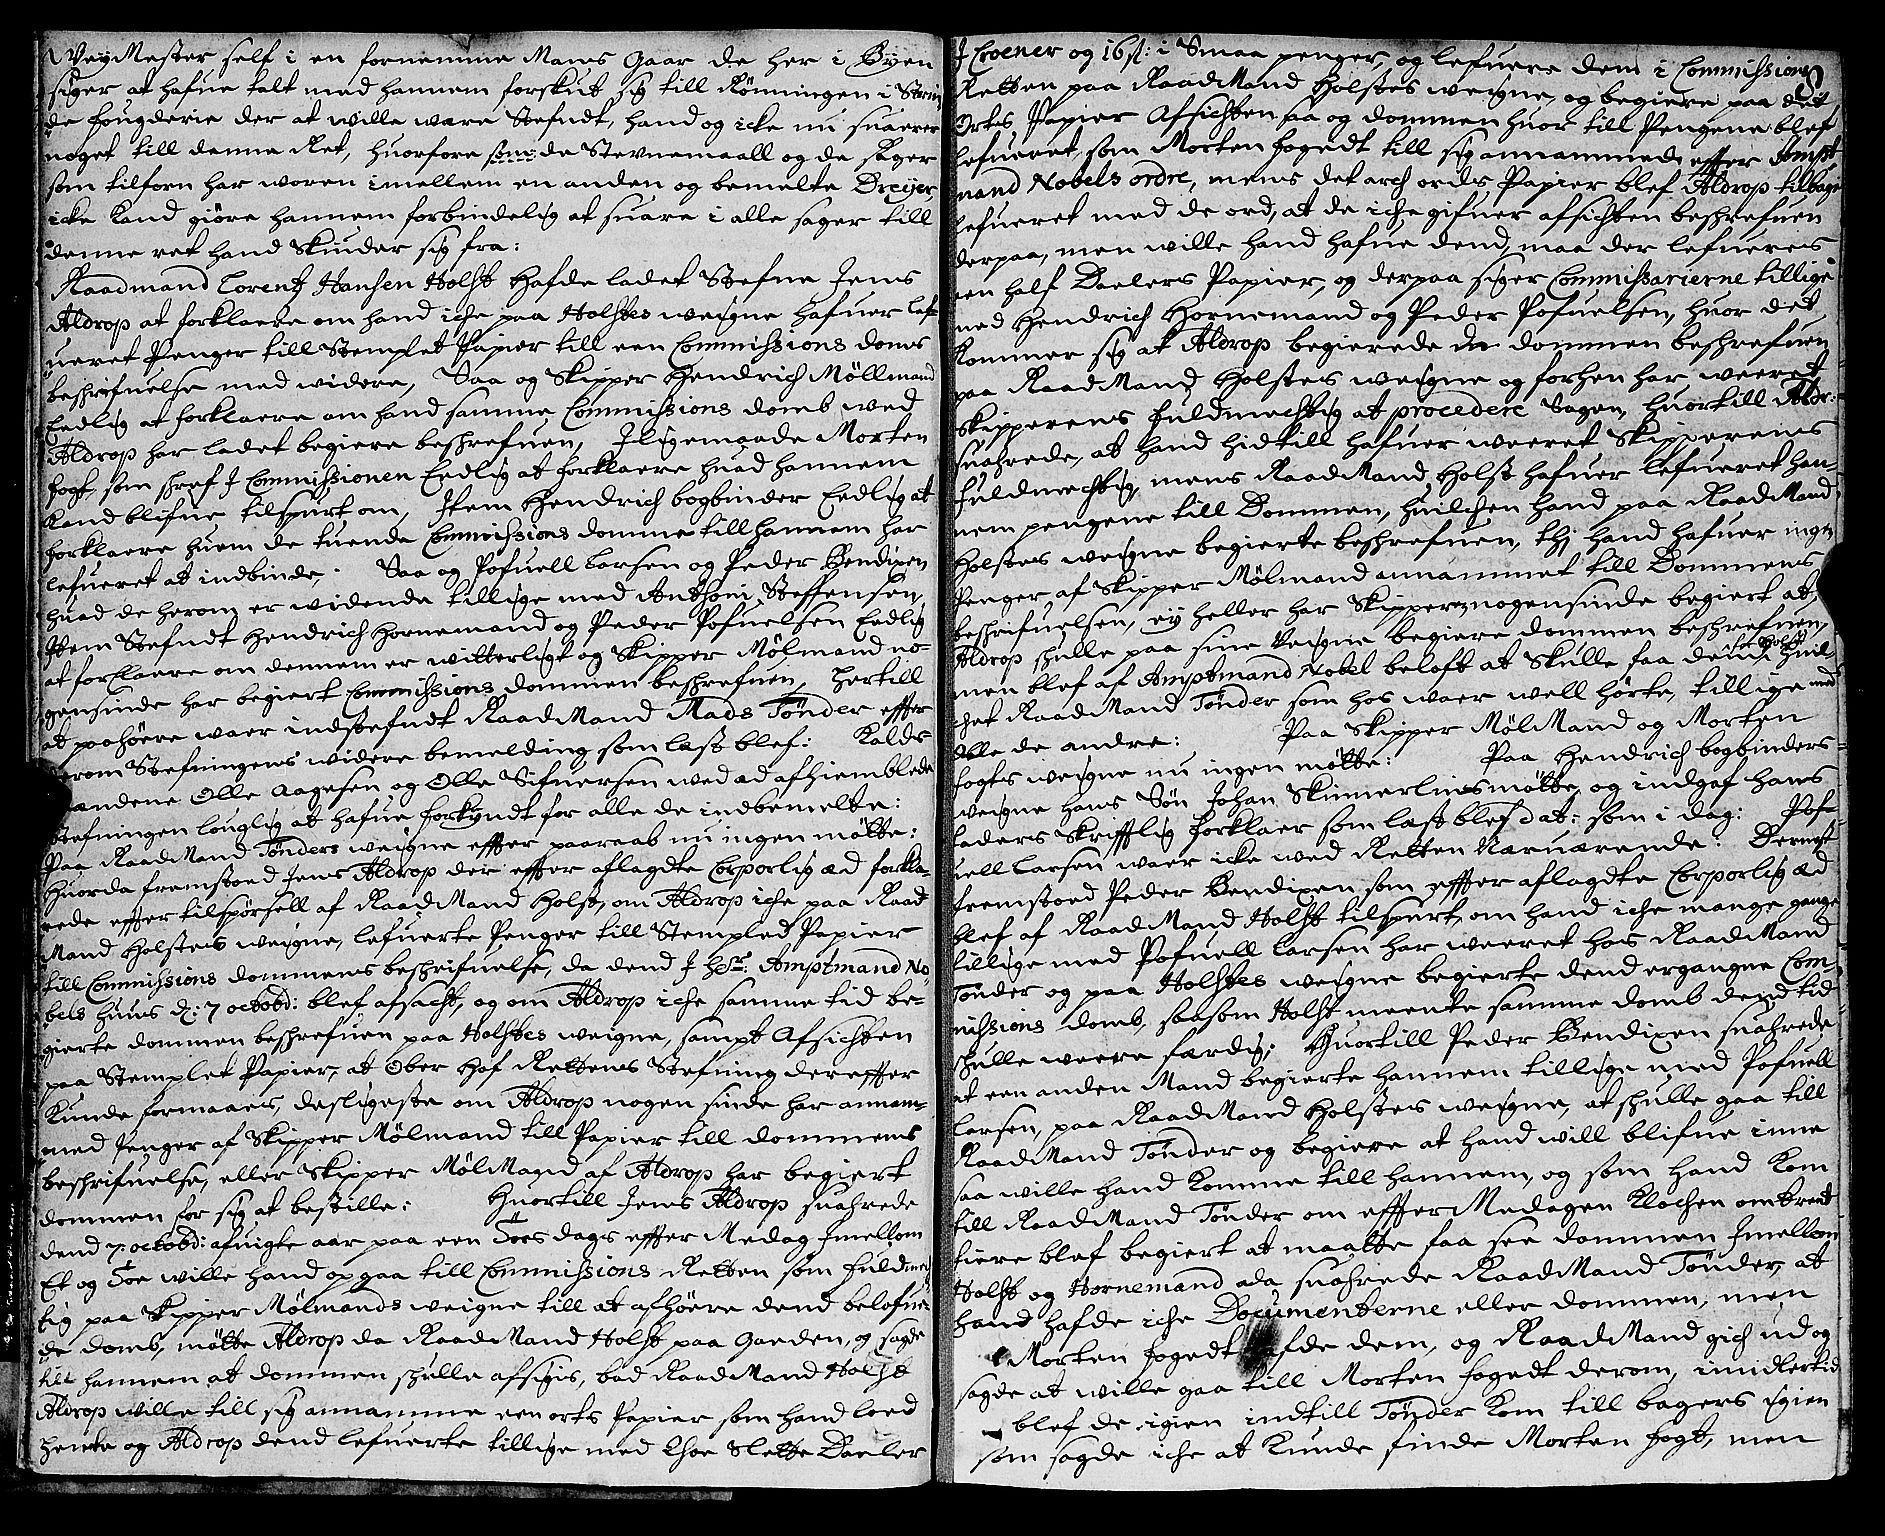 WeyMester self i en fornemme Mans Gaar de her i Byen
siger at hafue talt med hannem forskut sig till Rønningen i Strin
de fougderie der at wille were Stefndt, hand og icke nu suarer
noget till denne Ret, huorfore som de Stevnemaall og de sager
som tilforn har woren imellem en anden og bemelte Dreyer,
icke kand giøre hannem forbindelig at suare i alle sager till
denne ret hand skiuder sig fra:
Raadmand Lorentz Hansen Holst hafde ladet Stefne Jens
Aldrop at forklaere om hand iche paa Holstes weigne hafuer lef-
ueret Penger till Stemplet Papier till een Commissions doms
beskrifuelse med widere, Saa og Skipper Hendrich Möllmand
Eedlig at forklaere om hand samme Commissions domb wed
Aldrop har ladet begiere beskrefuen, Iligemaade Morten
fogt, som skref I Commissionen Eedlig at forklaere huad hannem
kand blifue tilspurt om, Item Hendrich bogbinder Eedlig at
forklaere huem de tuende Commissions domme till hannem har
lefueret at indbinde, Saa og Pofuell Larsen og Peder Bendixen
huad de herom er widende tillige med Anthoni Steffensen
Item Stefndt Hendrich Hornemand og Peder Pofuelsen Eedlig
at forklaere om dennem er witterligt og Skipper Mølmand no-
gensinde har begiert Commissions dommen beskrefuen, Hertill
at paahøere waer indstefndt RaadMand Mads Tønder effter
derom Stefningens widere bemelding som læst blef: Kalds
mændene Olle Aagesen og Olle Sifuersen wed æd afhiemblede
Stefningen louglig at hafue forkyndt for alle de indbemelte:
Paa RaadMand Tønders weigne effter paaraab nu ingen mötte:
Huorda fremstoed Jens Aldrop der effter aflagdte Corporlig æd forkla-
rede effter tilspörsell af RaadMand Holst, om Aldrop iche paa Raad
Mand Holstes weigne, lefuerte Penger till Stempled Papier
till Commissions dommens beskrifuelse, da dend J Hr: Amptmand No
bels huus d: 7 octobr: blef afsacht, og om Aldrop iche samme tid be-
gierte dommen beskrefuen paa Holstes weigne, sampt Afsichten
paa Stemplet Papier, at Ober Hof Rettens Stefning dereffter
kunde formaaes, desligeste om Aldrop nogen sinde har annam-
med Penger af Skipper Mølmand till Papier till dommens
beskrifuelse, eller Skipper MølMand af Aldrop har begiert
dommen for sig at bestille: Huortill Jens Aldrop suahrede
dend 7: octobr: afuigte aar paa een Tøes dags effter Medag Imellom
Et og Toe wille hand op gaa till Commissions Retten som fuldmeg
tig paa Skipper Mølmands weigne till at afhøere dend belofue
de domb, mötte Aldrop da RaadMand Holst paa Gaarden, og sagde
till hannem at dommen skulle afsigis, bad RaadMand Holst
Aldrop wille till sig annamme een orts Papier som hand loed
hente og Aldrop dend lefuerte tillige med Thoe Slette Daeler
J Croener og 16 s: i Smaa penger, og lefuere dem i Commissions
Retten paa RaadMand Holstes weigne, og begiere paa det
Ortes Papier Afsichten saa og dommen huor till Pengene blef
lefueret, som Morten fogedt till sig annammede effter Ampt
mand Nobels ordre, mens det arch ords Papier blef Aldrop tilbage
lefueret med de ord, at de iche gifuer afsichten beskrefuen
derpaa, men wille hand hafue dend, maa der lefueres
een half Daelers Papier, og derpaa siger Commissarierne tillige
med Hendrich Hornemand og Peder Pofuelsen, huor det
kommer sig at Aldrop begierede dommen beskrefuen
paa RaadMand Holstes weigne og forhen har weeret
Skipperens fuldmechtig at procedere Sagen, huortill Aldr:
suahrede, at hand hidtill hafuer weeret Skipperens
fuldmechtig, mens RaadMand Holst hafuer lefueret han-
nem pengene till Dommen, huilchen hand paa RaadMand
Holstes weigne begierte beskrefuen, thj hand hafuer ingen
Penger af Skipper Mølmand annammet till Dommens
beskrifuelsen, ey heller har Skipperen nogensinde begiert at
Aldrop skulle paa sine Veigne begiere dommen beskrefuen,
men blef af Amptmand Nobel belofft at skulle faa dend for Holst huil-
chet RaadMand Tønder som hos waer well hørte, tillige med
Olle de andre: Paa Skipper MølMand og Morten
fogts weigne nu ingen mötte: Paa Hendrich bogbinders
weigne hans Søn Johan Skinnerlin mötte, og indgaf hans
faders skrifftlig forklaer som læst blef dat: som i dag: Pof-
uell Larsen waer icke wed Retten Nærværende: Dernest
fremstoed Peder Bendixen som effter aflagdte Corporlig æd
blef af RaadMand Holst tilspurt, om hand iche mange gange
tillige med Pofuell Larsen har weeret hos RaadMand
Tønder og paa Holstes weigne begierte dend ergangne Com-
missions domb, saasom Holst meente samme domb dend tid
skulle weere færdig; Huortill Peder Bendixen suahrede
at een anden Mand begierte hannem tillige med Pofuell
Larsen, paa RaadMand Holstes weigne, at skulle gaa till
RaadMand Tønder og begiere at hand will blifue inne
saa wille hand komme till hannem, og som hand kom
till RaadMand Tønder om effter Medagen Klochen ombtrent
fiere blef begiert at maatte faa see dommen Imellom
Holst og Hornemand, da suahrede RaadMand Tønder, at
hand hafde iche Documenterne eller dommen, men
Morten fogedt hafde dem, og RaadMand gich ud og
sagde at wille gaa till Morten fogedt derom, imidlertid
blef de igien indtill Tønder kom till bagers igien
som sagde iche at kunde finde Morten fogt, men